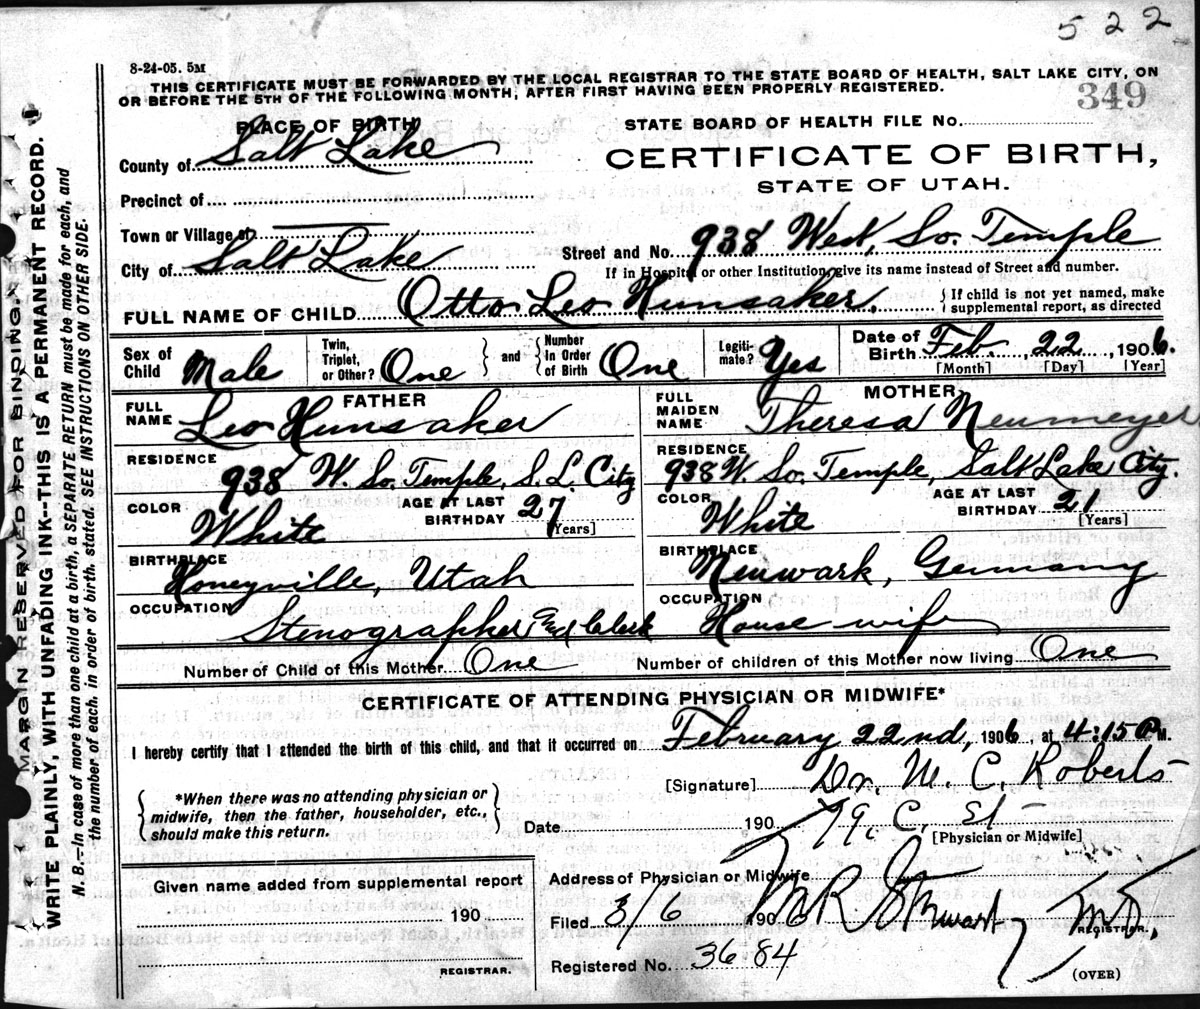 522
8-24-05. 5M
THIS CERTIFICATE MUST BE FORWARDED BY THE LOCAL REGISTRAR TO THE STATE BOARD OF HEALTH, SALT LAKE CITY, ON
OR BEFORE THE 5TH OF THE FOLLOWING MONTH, AFTER FIRST HAVING BEEN PROPERLY REGISTERED.
349
PLACE OF BIRTH
STATE BOARD OF HEALTH FILE No.
County of Salt Lake
CERTIFICATE OF BIRTH,
STATE OF UTAH.
Precinct of
Town or Village of
Street and No. 938 West, So. Temple
City of Salt Lake
If in Hospital or other Institution, give its name instead of Street and number.
FULL NAME OF CHILD Otto Leo Hunsaker.
If child is not yet named, make
supplemental report, as directed
Sex of Child Male
Twin, Triplet, or Other? One
and Number In Order of Birth One
Legitimate? Yes
Date of Birth Feb. 22, 1906.
[Month] [Day] [Year]
FATHER
MOTHER
FULL NAME Leo Hunsaker
FULL MAIDEN NAME Theresa Neumeyer
RESIDENCE 938 W. So. Temple, S. L. City
RESIDENCE 938 W. So. Temple, Salt Lake City.
COLOR White
AGE AT LAST BIRTHDAY 27 [Years]
COLOR White
AGE AT LAST BIRTHDAY 21 [Years]
BIRTHPLACE Honeyville, Utah
BIRTHPLACE Neuwark, Germany
OCCUPATION Stenographer and Clerk
OCCUPATION House wife
Number of Child of this Mother One
Number of children of this Mother now living One
CERTIFICATE OF ATTENDING PHYSICIAN OR MIDWIFE*
I hereby certify that I attended the birth of this child, and that it occurred on February 22nd, 1906, at 4:15 P.M.
[Signature] Dr. M. C. Roberts
*When there was no attending physician or
midwife, then the father, householder, etc.,
should make this return.
Date 190
79. C. St
[Physician or Midwife]
Given name added from supplemental report
190
REGISTRAR.
Address of Physician or Midwife
Filed 3/6 1906 M R Stewart, M.D.
REGISTRAR.
Registered No. 3684
(OVER)
MARGIN RESERVED FOR BINDING.
WRITE PLAINLY, WITH UNFADING INK--THIS IS A PERMANENT RECORD.
N. B.—In case of more than one child at a birth, a SEPARATE RETURN must be made for each, and
the number of each, in order of birth, stated. SEE INSTRUCTIONS ON OTHER SIDE.